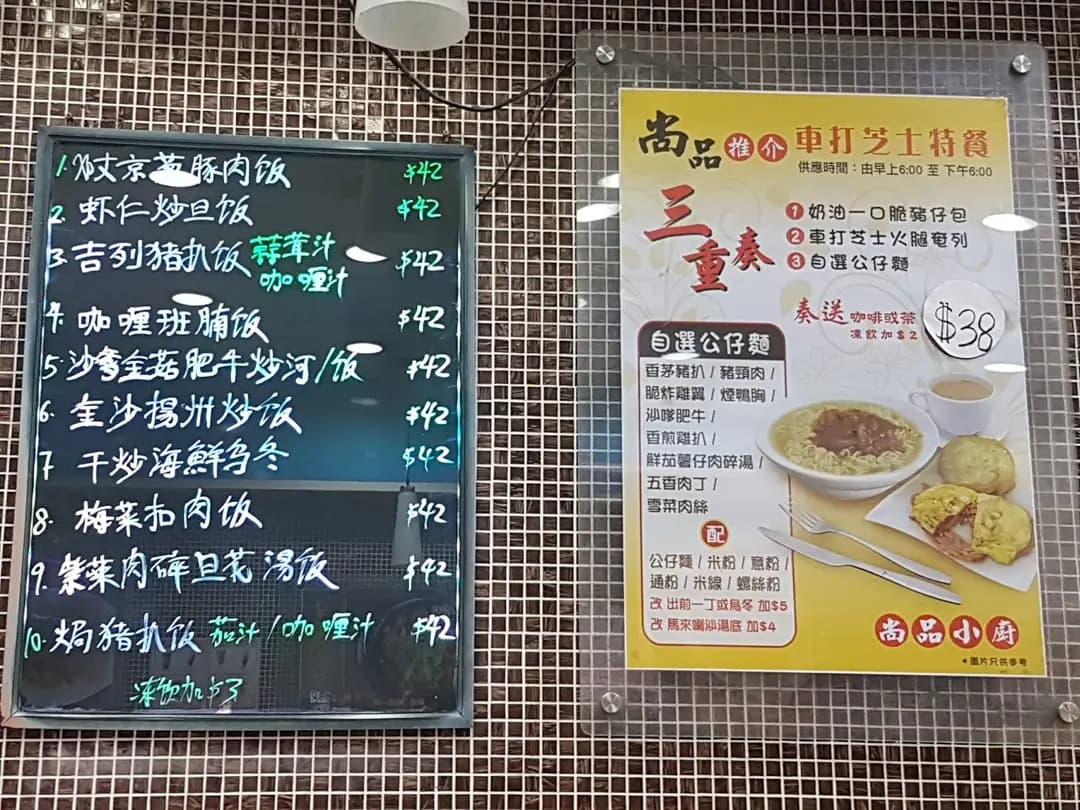 1. 京葱豚肉饭 $42
2. 虾仁炒旦饭 $42
3. 吉列豬扒饭 蒜茸汁 $42
咖喱汁
4. 咖喱班腩饭 $42
5. 沙爹金菇肥牛炒河/饭 $42
6. 金沙揚州炒饭 $42
7 干炒海鮮乌冬 $42
8. 梅菜扣肉饭 $42
9. 紫菜肉碎旦花湯饭 $42
10. 焗豬扒饭 茄汁/咖喱汁 $42
凍飲加$3
尚品推介 車打芝士特餐
供應時間:由早上6:00 至 下午6:00
三重奏
1 奶油一口脆豬仔包
2 車打芝士火腿奄列
3 自選公仔麵
奏送咖啡或茶
凍飲加$2
$38
自選公仔麵
香茅豬扒 / 豬頸肉 /
脆炸雞翼 / 煙鴨胸 /
沙嗲肥牛 /
香煎雞扒 /
鮮茄薯仔肉碎湯 /
五香肉丁 /
雪菜肉絲
配
公仔麵 / 米粉 / 意粉 /
通粉 / 米線 / 螺絲粉
改 出前一丁或烏冬 加$5
改 馬來喇沙湯底 加$4
尚品小廚
*圖片只供參考